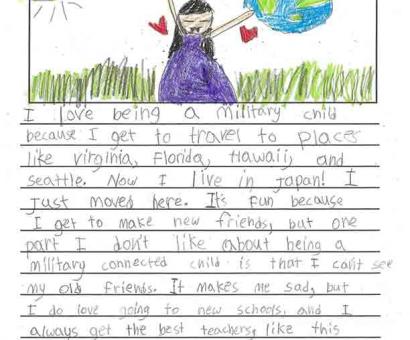 I love being a military child
because I get to travel to places
like virginia, Florida, Hawaii, and
seattle. Now I live in Japan! I
Just moved here. It's fun because
I get to make new friends, but one
part I don't like about being a
military connected child is that I can't see
my old friends. It makes me sad, but
I do love going to new schools, and I
always get the best teachers, like this